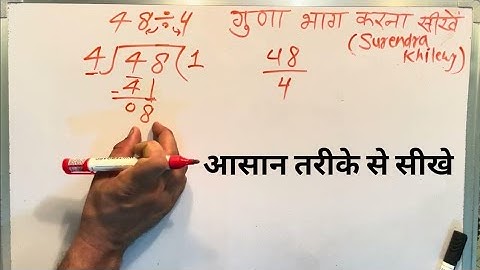 48÷4 गुणा भाग करना सीखें
(Surendra Khilery)
4)48(1
-4↓
08
48
4
आसान तरीके से सीखे